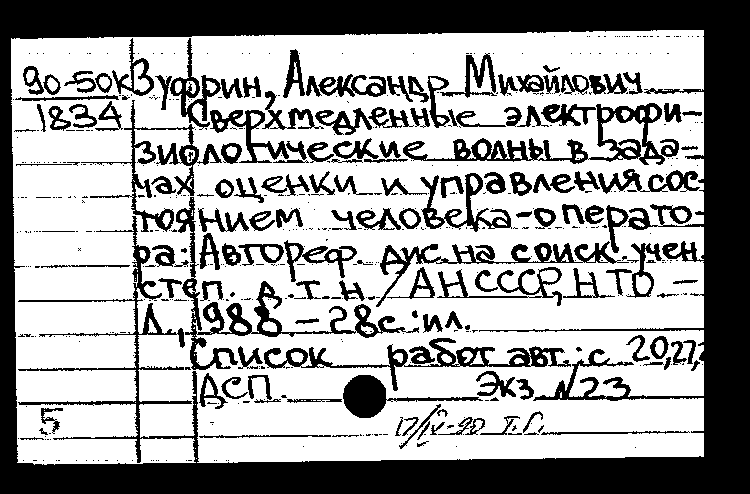 90-50к Зуфрин, Александр Михайлович
1834 Сверхмедленные электрофи-
зиологические волны в зада-
чах оценки и управления сос-
тоянием человека-операто-
ра: Автореф. дис. на соиск. учен.
степ. д.т.н. / АН СССР, НТО. —
Л., 1988 — 28с.:ил.
Список работ авт.: с 20,27,2
ДСП. Экз N23
5 17/IV-90 Т.Г.